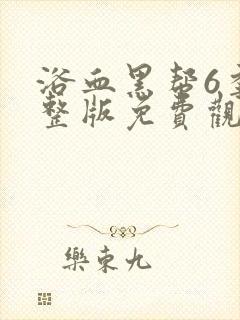 浴血黑帮6季
整版免費觀
樂東九